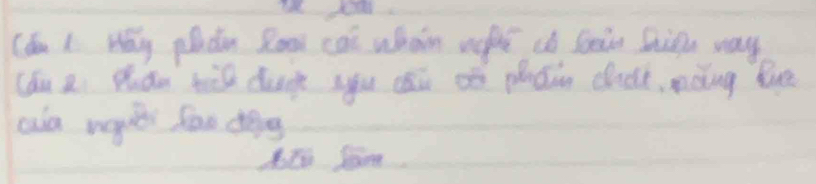 Đề bài
Câu 1 Hãy phân loại các nhóm nghề cơ bản hiện nay
Câu 2: Phân tích được yêu cầu về phẩm chất, năng lực
của người lao động
Bài làm